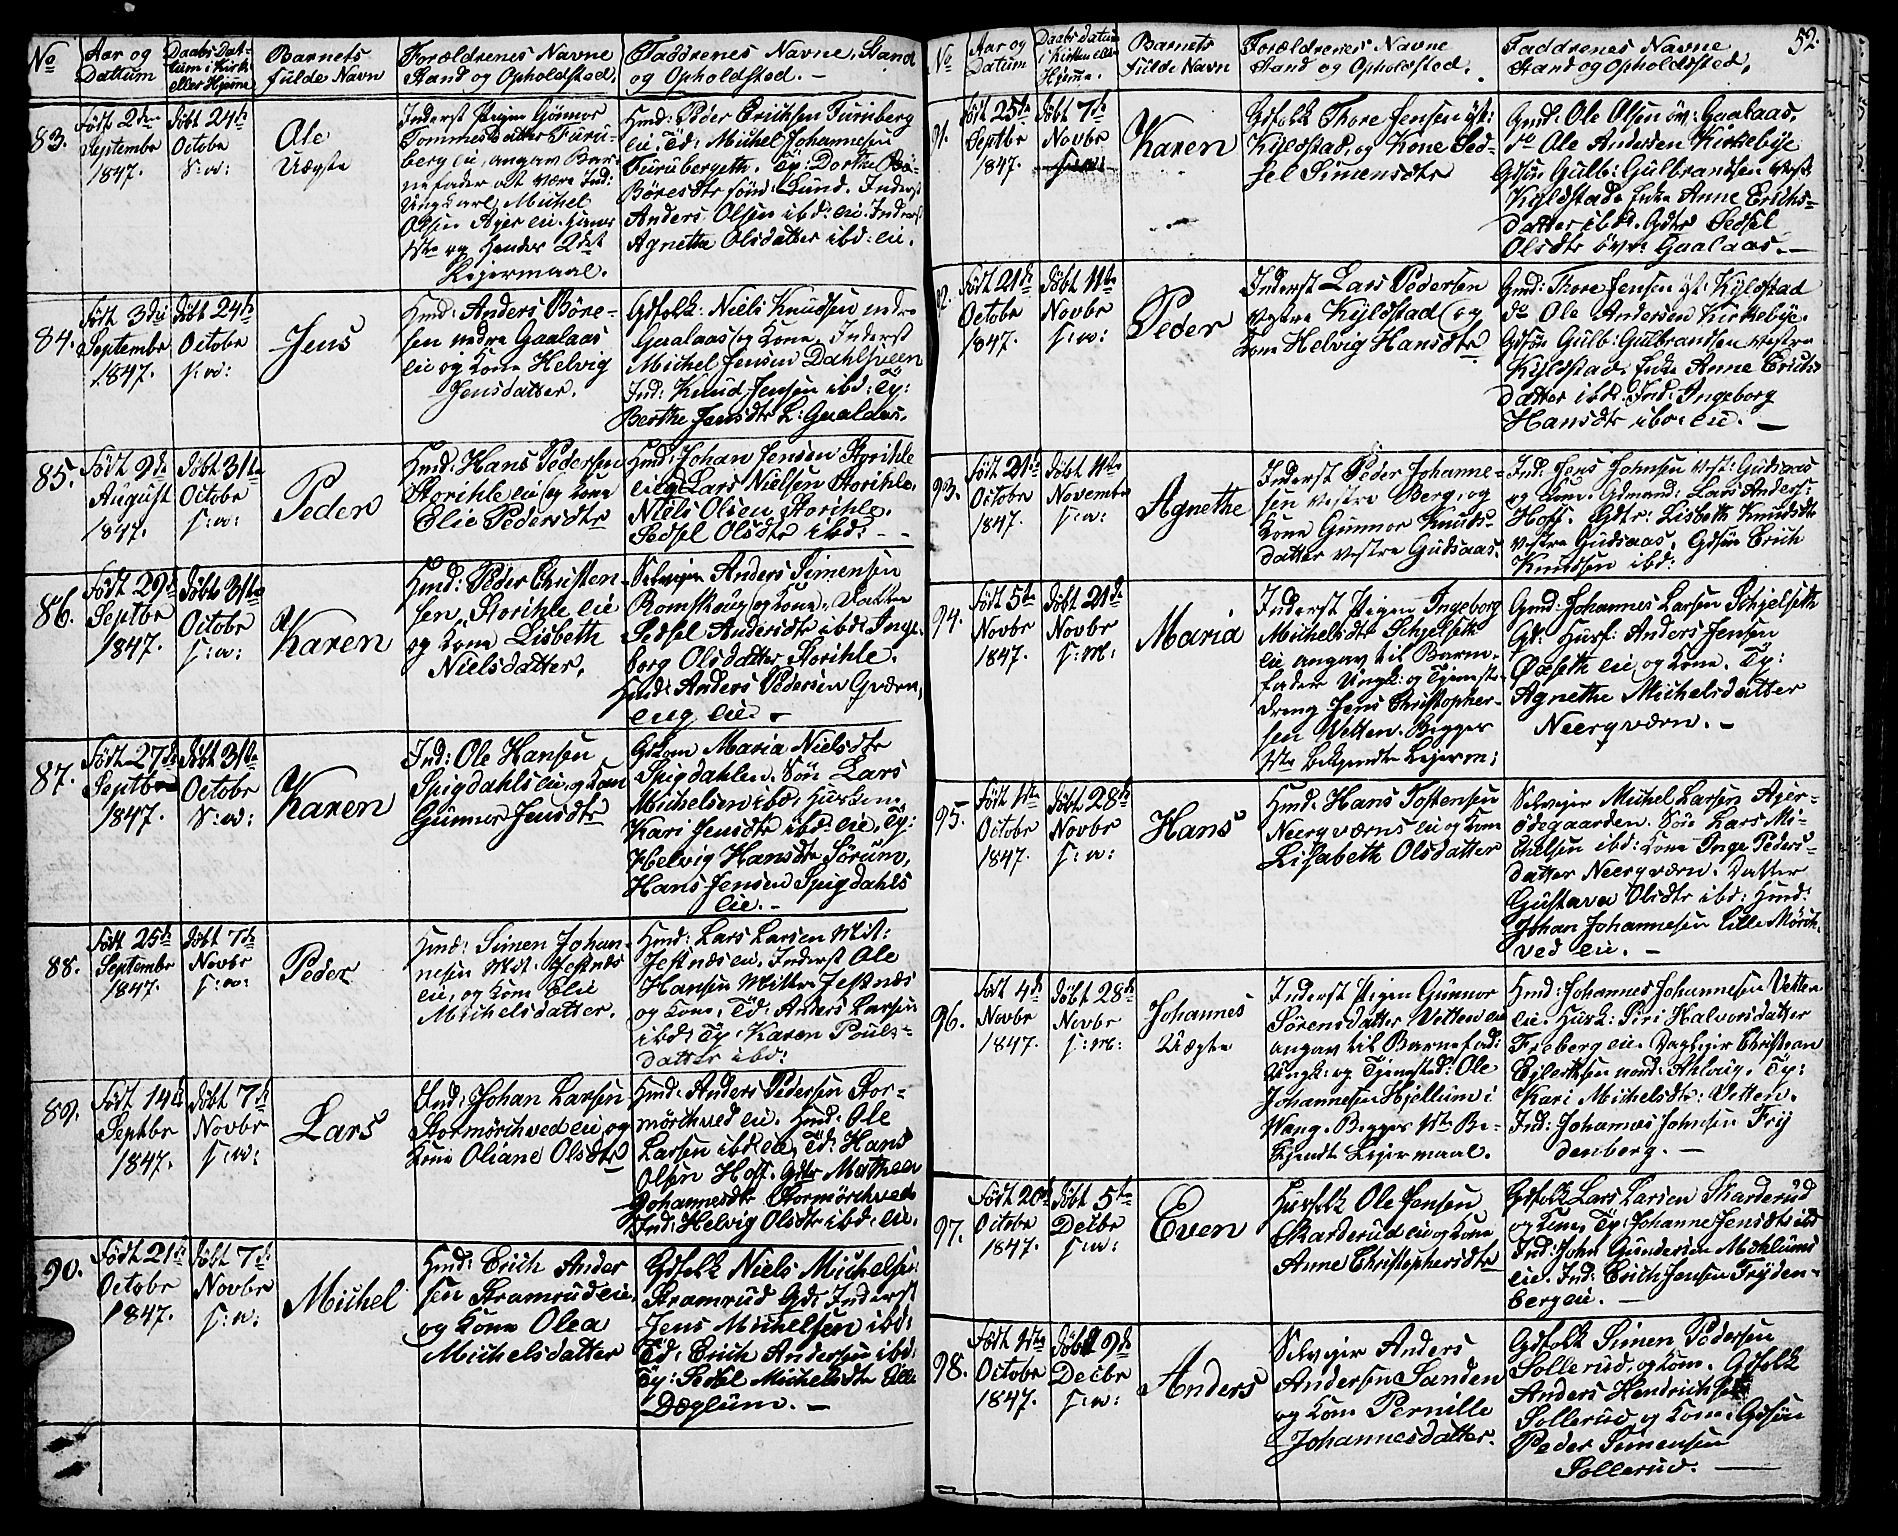 No
Aar og
Dattum
Daabs Dat-
tum i Kirk
eller Hjeme
Barnets
fulde Navn
Forældrenes Navne
Stand og Opholdsted,
Faddrenes Navne, Stand
og Opholdsted. -
83.
Født 2den
Septembr
1847.
døbt 24de
Octobr
S: w:
Ole
Uægte
Inderst Pigen Gönnor
Tommesdatter Furu-
berg eie, angav Bar-
nefader at være Ind:
Ungkarl Michel
Olsen Ager eie. hans
1ste og hendes 2det
Leiermaal.
Hmd: Peder Erichsen Furuberg
eie, Td: Michel Johannesen
Furubergeth. Tp: Dorthe Bö-
Böresdtr sönd: Lund. Inderst
Anders Olsen ibd: eie. Inderst
Agnethe Olsdatter ibd: eie.
84.
Født 3die
Septembr
1847.
døbt 24de
Octobr
s: w:
Jens
Hmd: Anders Böre-
sen nedre Gaalaas
eie og Kone Helvig
Jensdatter.
Gdfolk: Niels Knudsen nedre
Gaalaas og Kone. Inderst
Michel Jensen Dahlsveen
Ind: Knud Jensen ibd: Tp:
Berthe Jensdtr L: Gaalaas.
85.
Født 9de
August
1847.
døbt 31te
Octobr
s: w:
Peder
Hmd: Hans Pedersen
Storihle eie og Kone
Elie Pedersdtr
Hmd: Johan Jensen Storihle
eie og Lars Nielsen Storihle.
Niels Olsen Storihle.
Sedsel Olsdtr ibd: - -
86.
Født 29de
Septbr
1847.
døbt 31te
Octobr
s: w:
Karen
Hmd: Peder Christen-
sen, Storihle eie
og Kone Lisbeth
Nielsdatter.
Selveier Anders Simensen
Romskoug og Kone. Datter
Sedsel Andersdtr ibd: Inge-
borg Olsdatter Storihle.
Hmd: Anders Pedersen Qværn-
eug eie. -
87.
Født 27de
Septbr
1847.
døbt 31te
Octobr
S: w:
Karen
Ind: Ole Hansen
Spigdahls eie, og Kone
Gunnor Jensdtr
Gdkone Maria Nielsdtr
Spigdahlen. Sön Lars
Michelsen ibd: Huskone
Kari Jensdtr ibd: eie, Tp:
Helvig Hansdtr Sörum,
Hans Jensen Spigdahls
eie. -
88.
Født 25de
Septembr
1847.
døbt 7de
Novbr
s: w:
Peder
Hmd: Simen Johan-
nesen Mit: Jesnæs
eie, og Kone Elie
Michelsdatter.
Hmd: Lars Larsen Mit:
Jesnæs eie. Inderst Ole
Hansen Mittre Jesnæs
og Kone, Td: Anders Larsen
ibd: Tp: Karen Pouls-
datter ibd:
89.
Født 14de
Septbr
1847.
døbt 7de
Novbr
s: w:
Lars
Ind: Johan Larsen
Stormörchved eie og
Kone Oliane Olsdtr
Hmd: Anders Pedersen Stor-
mörchved eie. Hmd: Ole
Larsen ibd: eie, Td: Hans
Olsen Hoff. Gdtr Mathea
Johannesdtr Stormörchved
Ind: Helvig Olsdtr ibd: eie.
90.
Født 21de
Octobr
1847.
døbt 7de
Novbr
s: w:
Michel
Hmd: Erich Ander
sen Stramrud eie,
og Kone Olea
Michelsdatter
Gdfolk Niels Michelsen
Stramrud Gd: Inderst
Jens Michelsen ibd:
Td: Erich Andersen ibd:
Tp: Sedsel Michelsdtr Lille
Dæglum. -
52.
No
Aar og
Datum
Daabs datum
i Kirken eller
Hjeme.
Barnets
fulde Navn
Forældrenes Navne
Stand og Opholdsted.
Faddrenes Navne
Stand og Opholdssted.
91.
Født 25de
Septbr
1847.
døbt 7de
Novbr
Karen
Gdfolk Thore Jensen öst:
Kyldstad, og Kone Sed-
sel Simensdtr
Gmd: Ole Olsen öv: Gaalaas,
do Ole Andersen Kirkebye
Gdsön Gulb: Gulbrandsen vestr
Kyldstad, Enke Anne Erichs-
datter ibd: Gdtr Sedsel
Olsdtr övre Gaalaas. -
92.
Født 21de
Octobr
1847.
døbt 14de
Novbr
s: w:
Peder
Inderst Lars Pedersen
vestre Kyldstad, og
Kone Helvig Hansdtr
Gmd: Thore Jensen öst: Kyldstad
do Ole Andersen Kirkebye.
Gdsön Gulb: Gulbrandsen vestre
Kyldstad, Enke Anne Erichs
datter ibd: Ind: Ingeborg
Hansdtr ibd: eie. -
93.
Født 21de
Octobr
1847.
døbt 14de
Novembr
s: w:
Agnethe
Inderst Peder Johanne-
sen vestre Berg, og
Kone Gunnor Knuds-
datter vestre Gudsaas.
Ind: Jens Johnsen vest: Gudsaas
og Kone. Gdmand: Lars Anders:
Hoff. Gdtr: Lisbeth Knudsdtr
vestre Gudsaas. Gdsön Erich
Knudsen ibd:
94.
Født 5te
Novbr
1847.
døbt 21de
Novbr
s: m:
Maria
Inderst Pigen Ingeborg
Michelsdtr Schjelseth
eie angav til Barne-
fader Ungk: og Tjeneste-
dreng Jens Christopher-
sen Vetten. Begges
1ste bekjendte Leierm:
Gmd: Johannes Larsen Schjelseth
Gd: Husf: Anders Jensen
Öxseth eie, og Kone. Tp:
Agnethe Michelsdatter
Neerqværn. -
95.
Født 1ste
Octobr
1847.
døbt 28de
Novbr
s: w:
Hans
Hmd: Hans Tostensen
Neerqværns eie og Kone
Lisabeth Olsdatter
Selveier Michel Larsen Ager-
ödegaarden. Sön Lars Mi-
chelsen ibd: Kone Inge Peders-
datter Neerqværn. Datter
Gustava Olsdtr ibd: Hmd:
Johan Johannesen Lille Mörch-
ved eie. -
96.
Født 4de
Novbr
1847.
døbt 28de
Novbr
s: m:
Johannes
Uægte
Inderst Pigen Gunnor
Sörensdatter Vetten eie
angav til Barnefad:
Ungk: og Tjenested: Ole
Johannesen Hjellum i
Wang. Begges 1ste Be-
kjendt Leiermaal.
Hmd: Johannes Johannesen Vetten
eie. Husk: Siri Halvorsdatter
Freberg eie. Dagleier Christian
Eilertsen nord: Ahlvig. Tp:
Kari Michelsdtr: Vetten.
Ind: Johannes Johnsen Frij
denberg. -
97.
Født 20de
Octobr
1847.
døbt 5te
Decbr
s: w:
Even
Husfolk Ole Jensen
Skarderud eie og Kone
Anne Christophersdtr
Gdfolk Lars Larsen Skarderud
og Kone, Tp: Johanne Jensdtr ibd
Ind: John Gundersen Mæhlums
eie. Ind: Erich Jensen Fryden-
berg eie. -
98.
Født 1ste
Octobr
1847.
døbt 9de
Decbr
s: w:
Anders
Selveier Anders
Andersen Sanden
og Kone Pernille
Johannesdatter.
Gdfolk Simen Pedersen
Sollerud, og Kone. Gdfolk
Anders Hendrichsen
Sollerud, og Kone. Gdsön
Peder Simensen
Sollerud. -